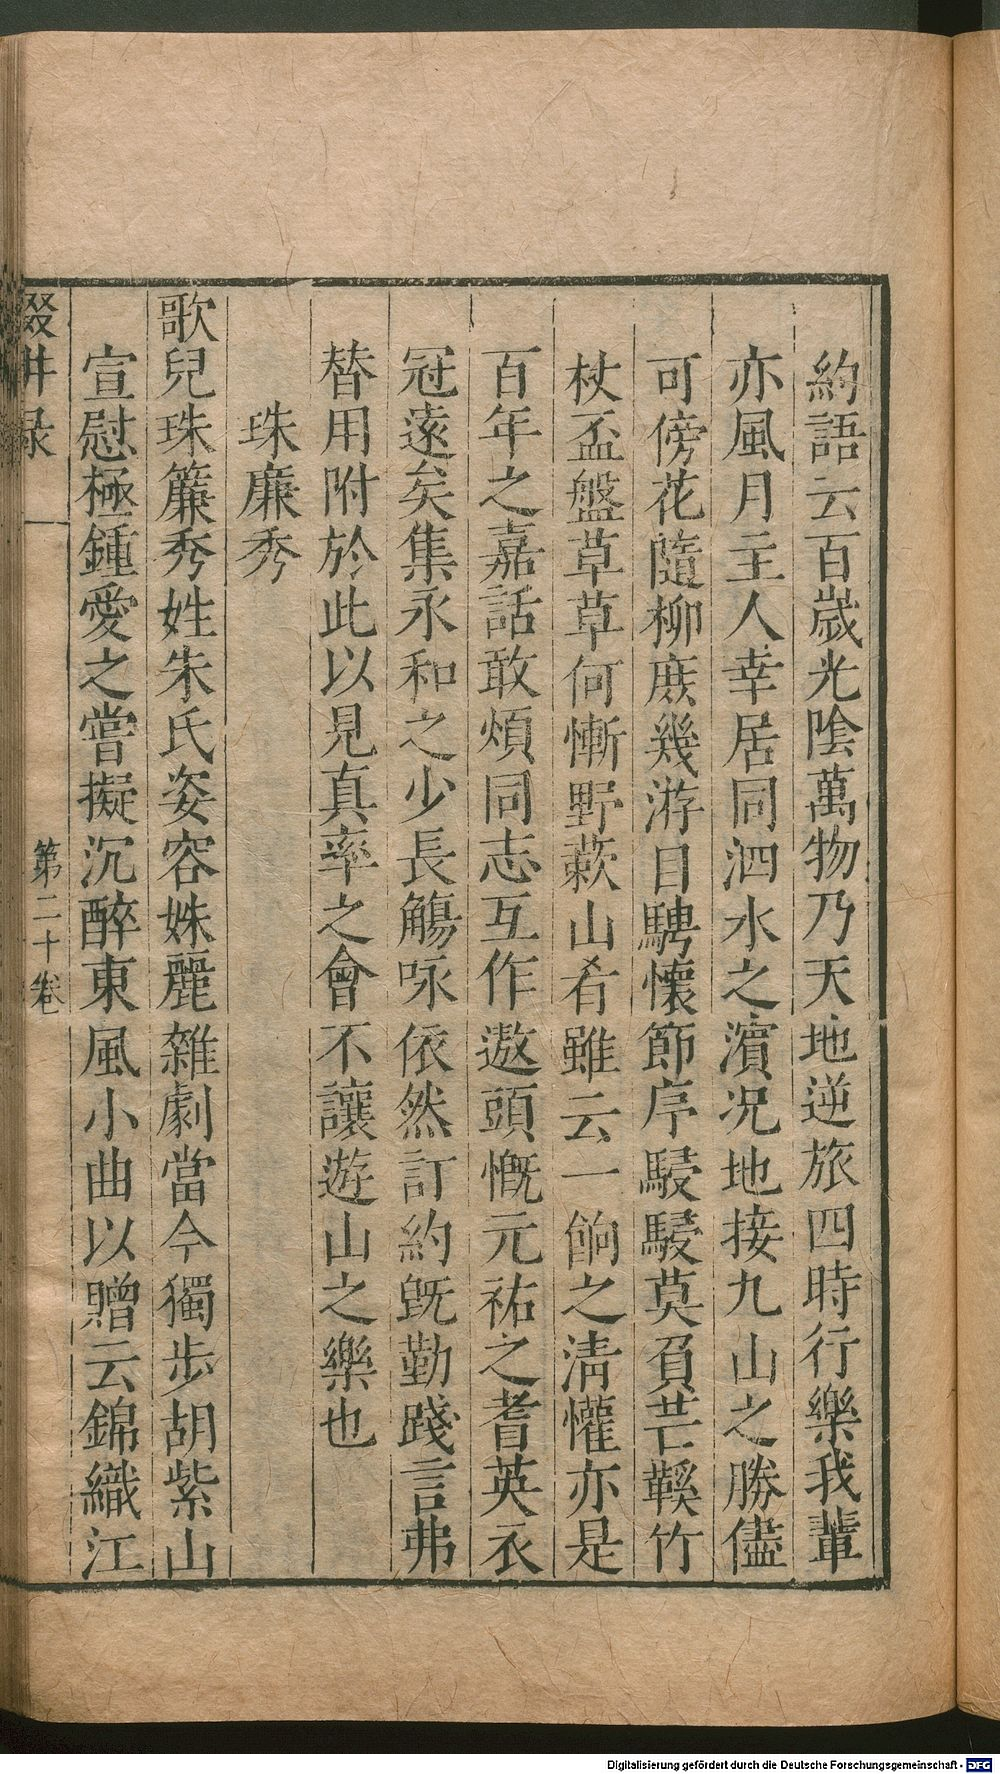 約語云百歲光陰萬物乃天地逆旅四時行樂我輩
亦風月主人幸居同泗水之濵况地接九山之勝儘
可傍花隨柳庻幾游目騁懷節序駸駸莫負芒鞵竹
杖盃盤草草何慚野蔌山肴雖云一餉之淸懽亦是
百年之嘉話敢煩同志互作遨頭慨元祐之耆英衣
冠遠矣集永和之少長觴咏依然訂約旣勤踐言弗
替用附於此以見真率之會不讓遊山之樂也
珠廉秀
歌兒珠簾秀姓朱氏姿容姝麗雜劇當今獨步胡紫山
宣慰極鍾愛之嘗擬沉醉東風小曲以贈云錦織江
輟畊录
第二十卷
Digitalisierung gefördert durch die Deutsche Forschungsgemeinschaft - DFG